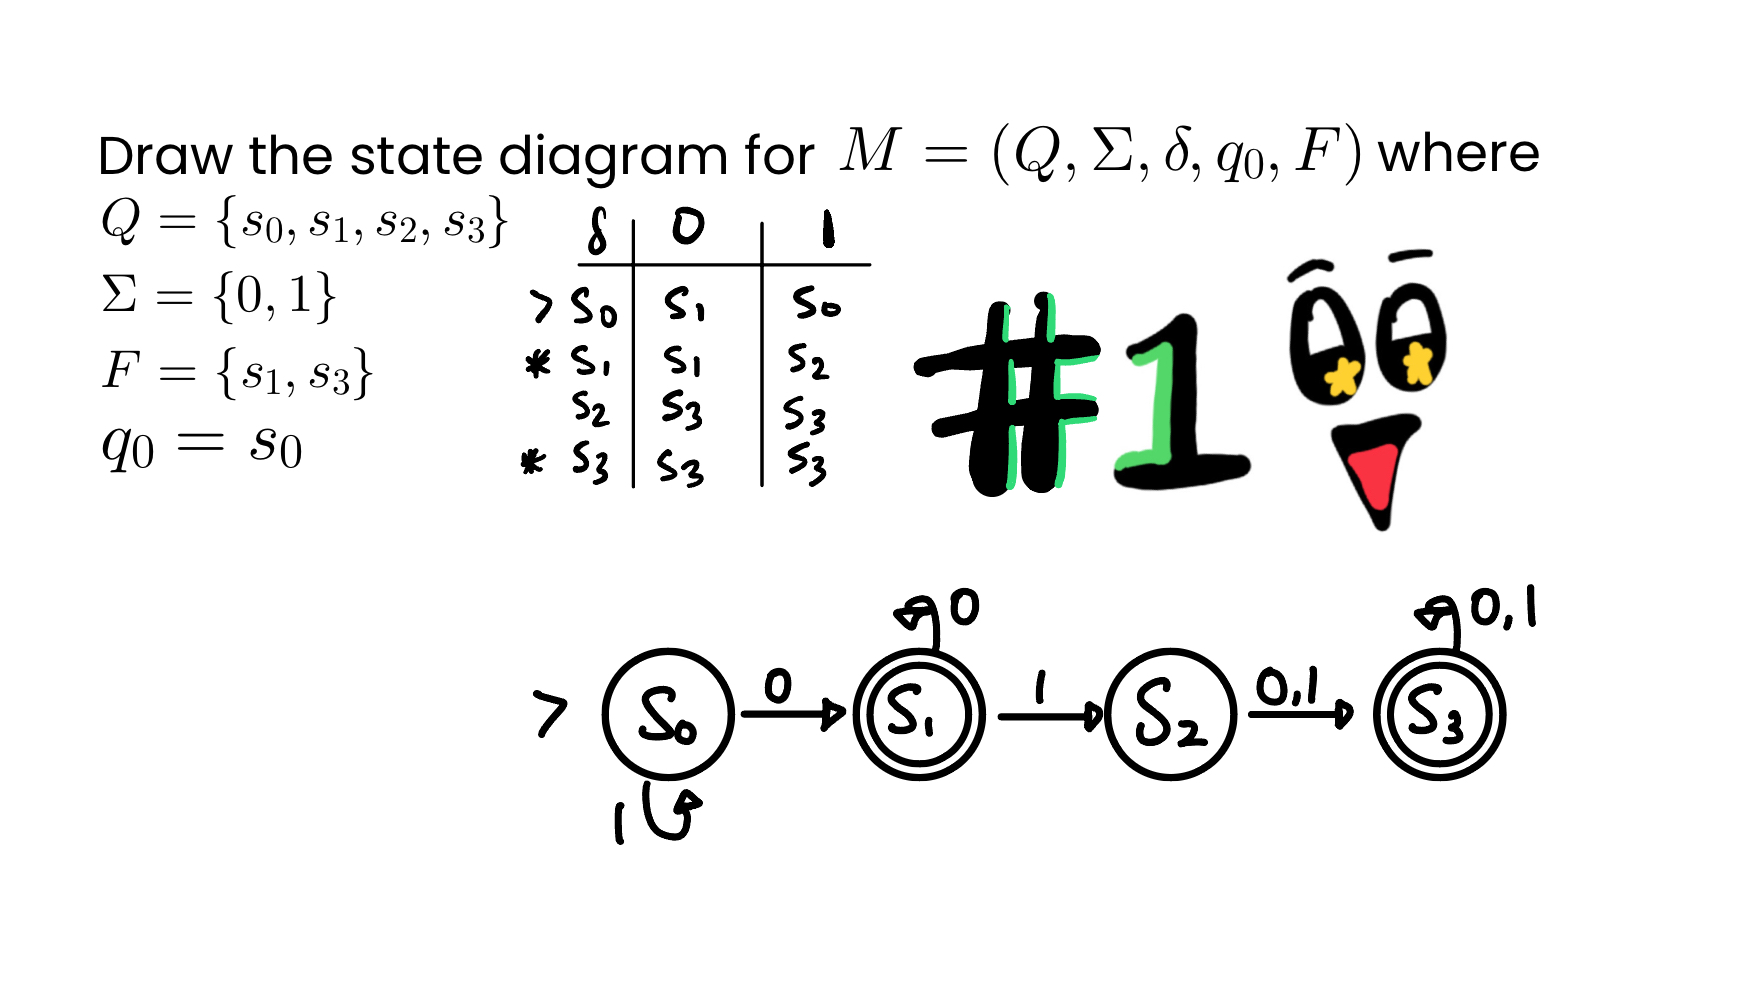 Draw the state diagram for M = (Q, Σ, δ, q₀, F) where
Q = {s₀, s₁, s₂, s₃}
Σ = {0, 1}
F = {s₁, s₃}
q₀ = s₀
δ 0 1
> S₀ S₁ S₀
* S₁ S₁ S₂
S₂ S₃ S₃
* S₃ S₃ S₃
#1
0 0,1
0 1 0,1
> S₀ S₁ S₂ S₃
1